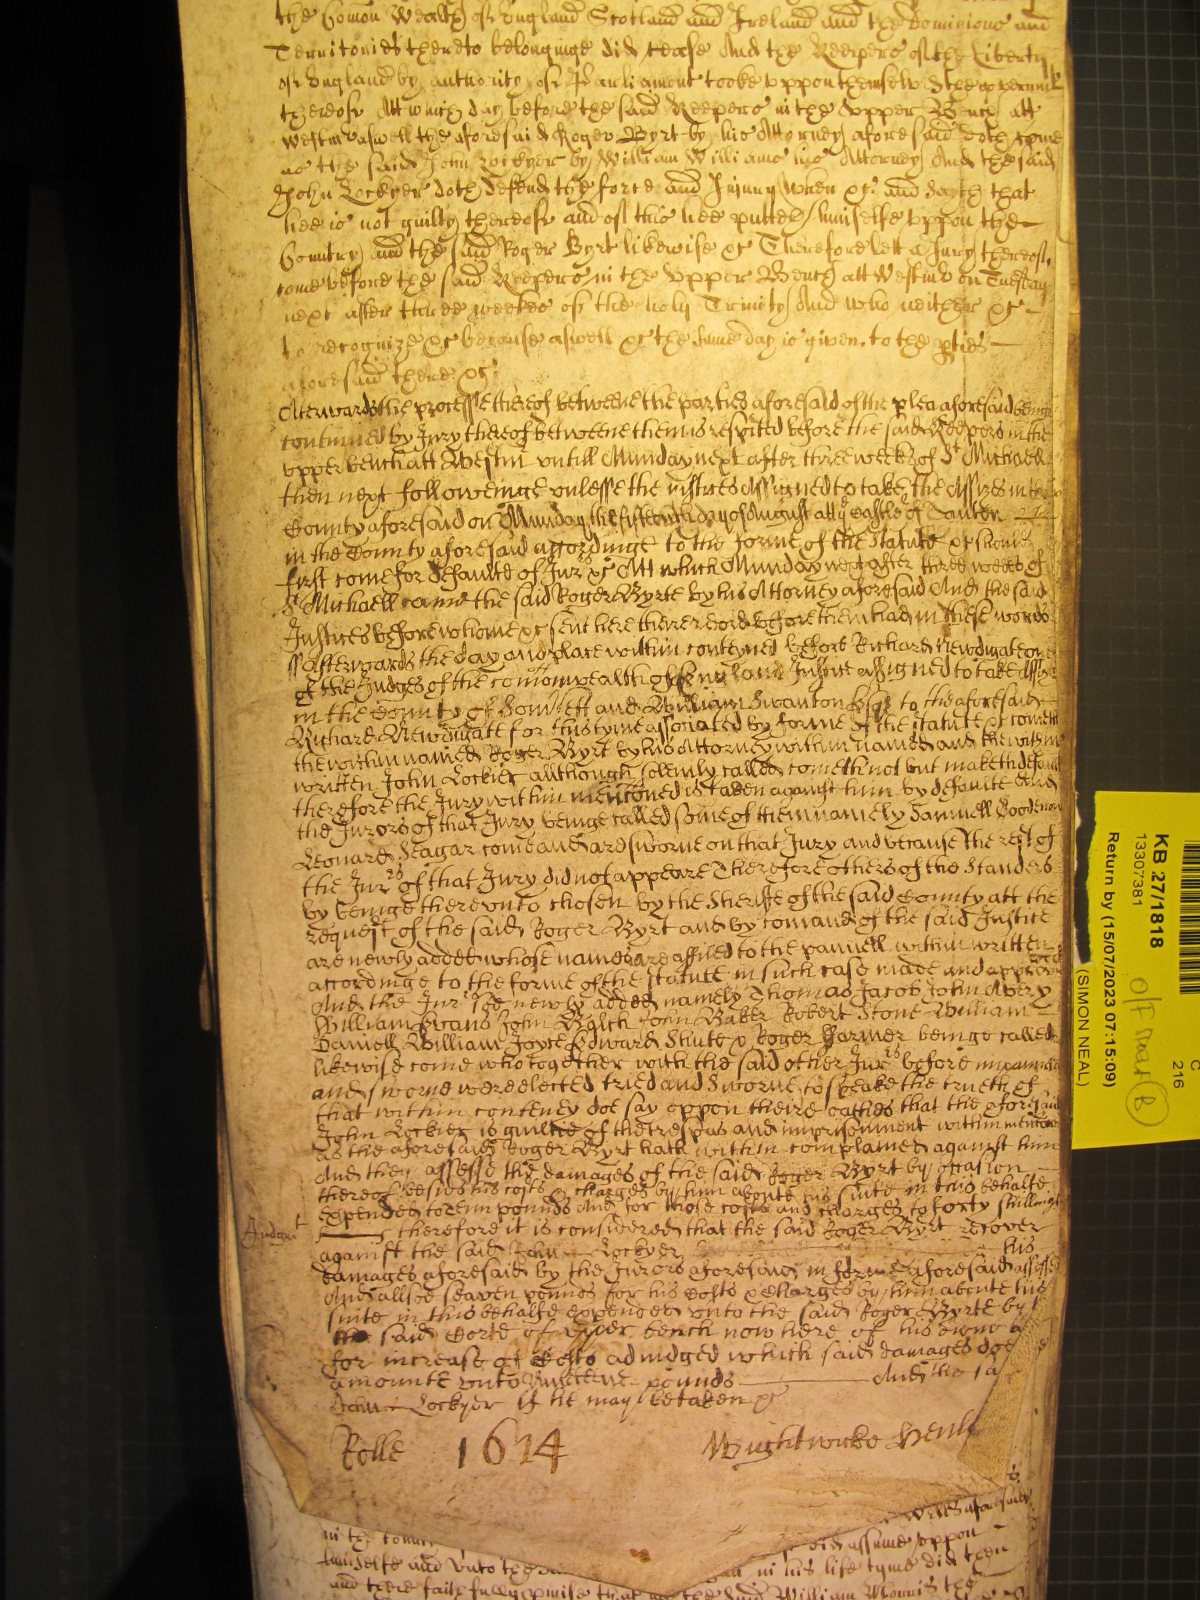 the Comon Wealth of England Scotland and Ireland and the Dominions and
Territories thereto belonginge did cease And the Keepers of the Liberty
of England by authority of Parliament tooke uppon themselves the
thereof Att which day before the said Keepers in the Upper Bench att
Westmr aswell the aforesaid Roger Byrt by his Attorney aforesaid doth come
as the said John Lockyer by William Williams his Attorney And the said
John Lockyer doth defend the force and Injury when &c. and saith that
hee is not guilty thereof and of this hee putteth himselfe uppon the
Country and the said Roger Byrt likewise &c Therefore lett a Jury thereof
come before the said Keepers in the Upper Bench att Westmr on Tuesday
next after three weekes of the holy Trinity And who neither &c
to recognize &c because aswell &c the same day is given to the pties
aforesaid there &c.
Afterwards the processe thereof betweene the parties aforesaid of the plea aforesaid beinge
continued by Jury thereof betweene them is respited before the said Keepers in the
upper bench att Westmr untill Munday next after three weekes of St Michaell
then next followeinge unlesse the Justices Assigned to take the Assizes in the
County aforesaid on Munday the fifteenth day of August att the Castle of Taunton
in the County aforesaid accordinge to the forme of the Statute &c should
first come for defaulte of Jurrs &c Att which Munday next after three weekes of
St Michaell came the said Roger Byrte by his Attorney aforesaid And the said
Justices before whome &c sent here there record before them had in these words
ss Afterwards the day and place within conteyned before Richard Newdigate one
of the Judges of the comonwealth of England Justice assigned to take Assizes
in the County of Somsett and William Swanton to the aforesaid
Richard Newdigate for this tyme associated by forme of the statute &c cometh
the within named Roger Byrt by his Attorney within named and the within
written John Lockier although solemly called cometh not but maketh default
therefore the Jury within mentioned is taken against him by defaulte And
the Jurors of that Jury beinge called some of them namely Samuell
Leonard Seagar come and are sworne on that Jury and because the rest of
the Jurrs of that Jury did not appeare Therefore others of the Standers
by beinge thereunto chosen by the Sheriffe of the said County att the
request of the said Roger Byrt and by comand of the said Justice
are newly added whose names are affiled to the pannell within written
accordinge to the forme of the statute in such case made and
And the Jurrs soe newly added namely Thomas Jacob John Avery
William Evans John Balch John Baker Robert Stone William
Daniell William Joyce Edward Shute & Roger Farmer beinge called
likewise come who together with the said other Jurrs before impannelled
and sworne were elected tried and Sworne to speake the trueth of
that within conteyned doe say uppon theire oathes that the aforesaid
John Lockier is guiltie of the trespas and imprisonment within mentioned
as the aforesaid Roger Byrt hath within complained against him
And they assesse the damages of the said Roger Byrt by occasion
thereof besides his costs & charges by him aboute his suite in this behalfe
expended to tenn pounds And for those costs and charges to forty shillings
Judgmt therefore it is considered that the said Roger Byrt recover
against the said John Lockyer his
damages aforesaid by the Jurors aforesaid in forme aforesaid assessed
And allsoe seaven pounds for his Costs & Charges by him aboute his
suite in this behalfe expended unto the said Roger Byrte by
the said Corte of upper bench now here of his
for increase of Costs adiudged which said damages doe
amounte unto Nineteene pounds And the said
John Lockyer that he may be taken &c
Rolle 1614 Wightwicke
in the
did assume uppon
himselfe and unto the in his life tyme did then
and there faithfully pmise that the said William Morris the
KB 27/1818
13307381
Return by (15/07/2023 07:15:09)
(SIMON NEAL)
C
216
B